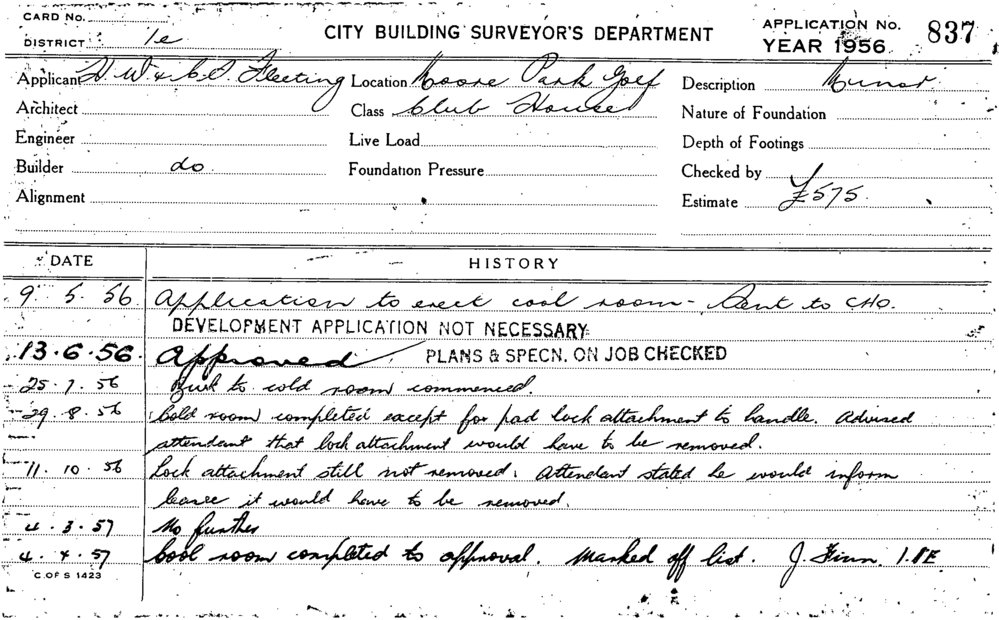 CARD No.
DISTRICT 1e
CITY BUILDING SURVEYOR'S DEPARTMENT
APPLICATION No. 837
YEAR 1956
Applicant H. W. & C. D. Fleeting Location Moore Park Golf Description Minor
Architect Class Club House Nature of Foundation
Engineer Live Load Depth of Footings
Builder do. Foundation Pressure Checked by
Alignment Estimate £575
DATE HISTORY
9. 5. 56 Application to erect cool room - Sent to CHO.
DEVELOPMENT APPLICATION NOT NECESSARY
13.6.56. Approved PLANS & SPECN. ON JOB CHECKED
25. 7. 56 to cold room commenced.
29. 8. 56 Cold room completed except for pad lock attachment to handle. Advised
attendant that lock attachment would have to be removed.
11. 10. 56 Lock attachment still not removed. Attendant stated he would inform
leasee it would have to be removed.
4. 3. 57 No further
4. 4. 57 Cool room completed to approval. Marked off list. J. Finn.
C. OF S 1423